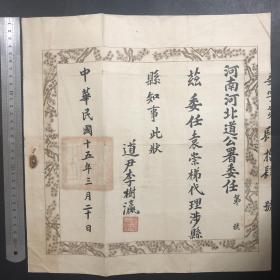 河南河北道公署委任第 號
茲委任袁崇梯代理涉縣
縣知事此狀
道尹李樹瀛
中華民國十五年三月二十日